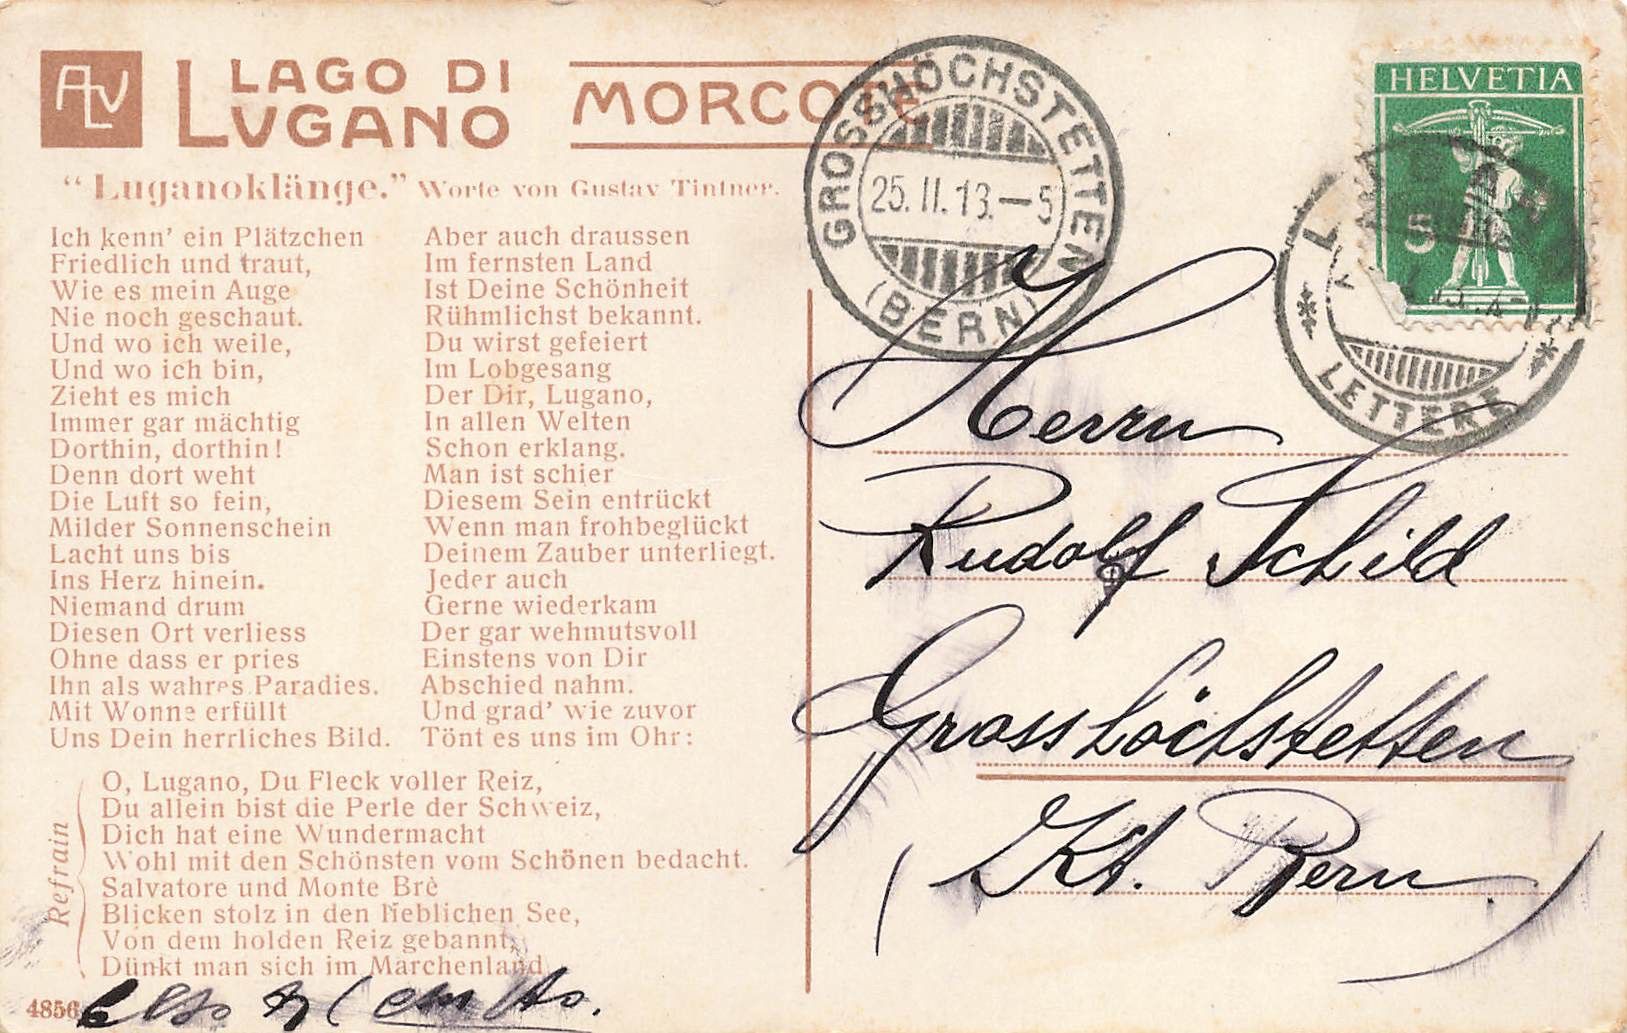 ALV
LAGO DI
LVGANO
MORCOTE
“Luganoklänge.” Worte von Gustav Tintner.
Ich kenn' ein Plätzchen
Friedlich und traut,
Wie es mein Auge
Nie noch geschaut.
Und wo ich weile,
Und wo ich bin,
Zieht es mich
Immer gar mächtig
Dorthin, dorthin!
Denn dort weht
Die Luft so fein,
Milder Sonnenschein
Lacht uns bis
Ins Herz hinein.
Niemand drum
Diesen Ort verliess
Ohne dass er pries
Ihn als wahres Paradies.
Mit Wonne erfüllt
Uns Dein herrliches Bild.
Aber auch draussen
Im fernsten Land
Ist Deine Schönheit
Rühmlichst bekannt.
Du wirst gefeiert
Im Lobgesang
Der Dir, Lugano,
In allen Welten
Schon erklang.
Man ist schier
Diesem Sein entrückt
Wenn man frohbeglückt
Deinem Zauber unterliegt.
Jeder auch
Gerne wiederkam
Der gar wehmutsvoll
Einstens von Dir
Abschied nahm.
Und grad' wie zuvor
Tönt es uns im Ohr:
Refrain
O, Lugano, Du Fleck voller Reiz,
Du allein bist die Perle der Schweiz,
Dich hat eine Wundermacht
Wohl mit den Schönsten vom Schönen bedacht.
Salvatore und Monte Brè
Blicken stolz in den lieblichen See,
Von dem holden Reiz gebannt,
Dünkt man sich im Märchenland
4856
GROSSHÖCHSTETTEN
25.II.13.–5
(BERN)
HELVETIA
5
LETTERE
Herrn
Rudolf Schild
Grosshöchstetten
(Kt. Bern)